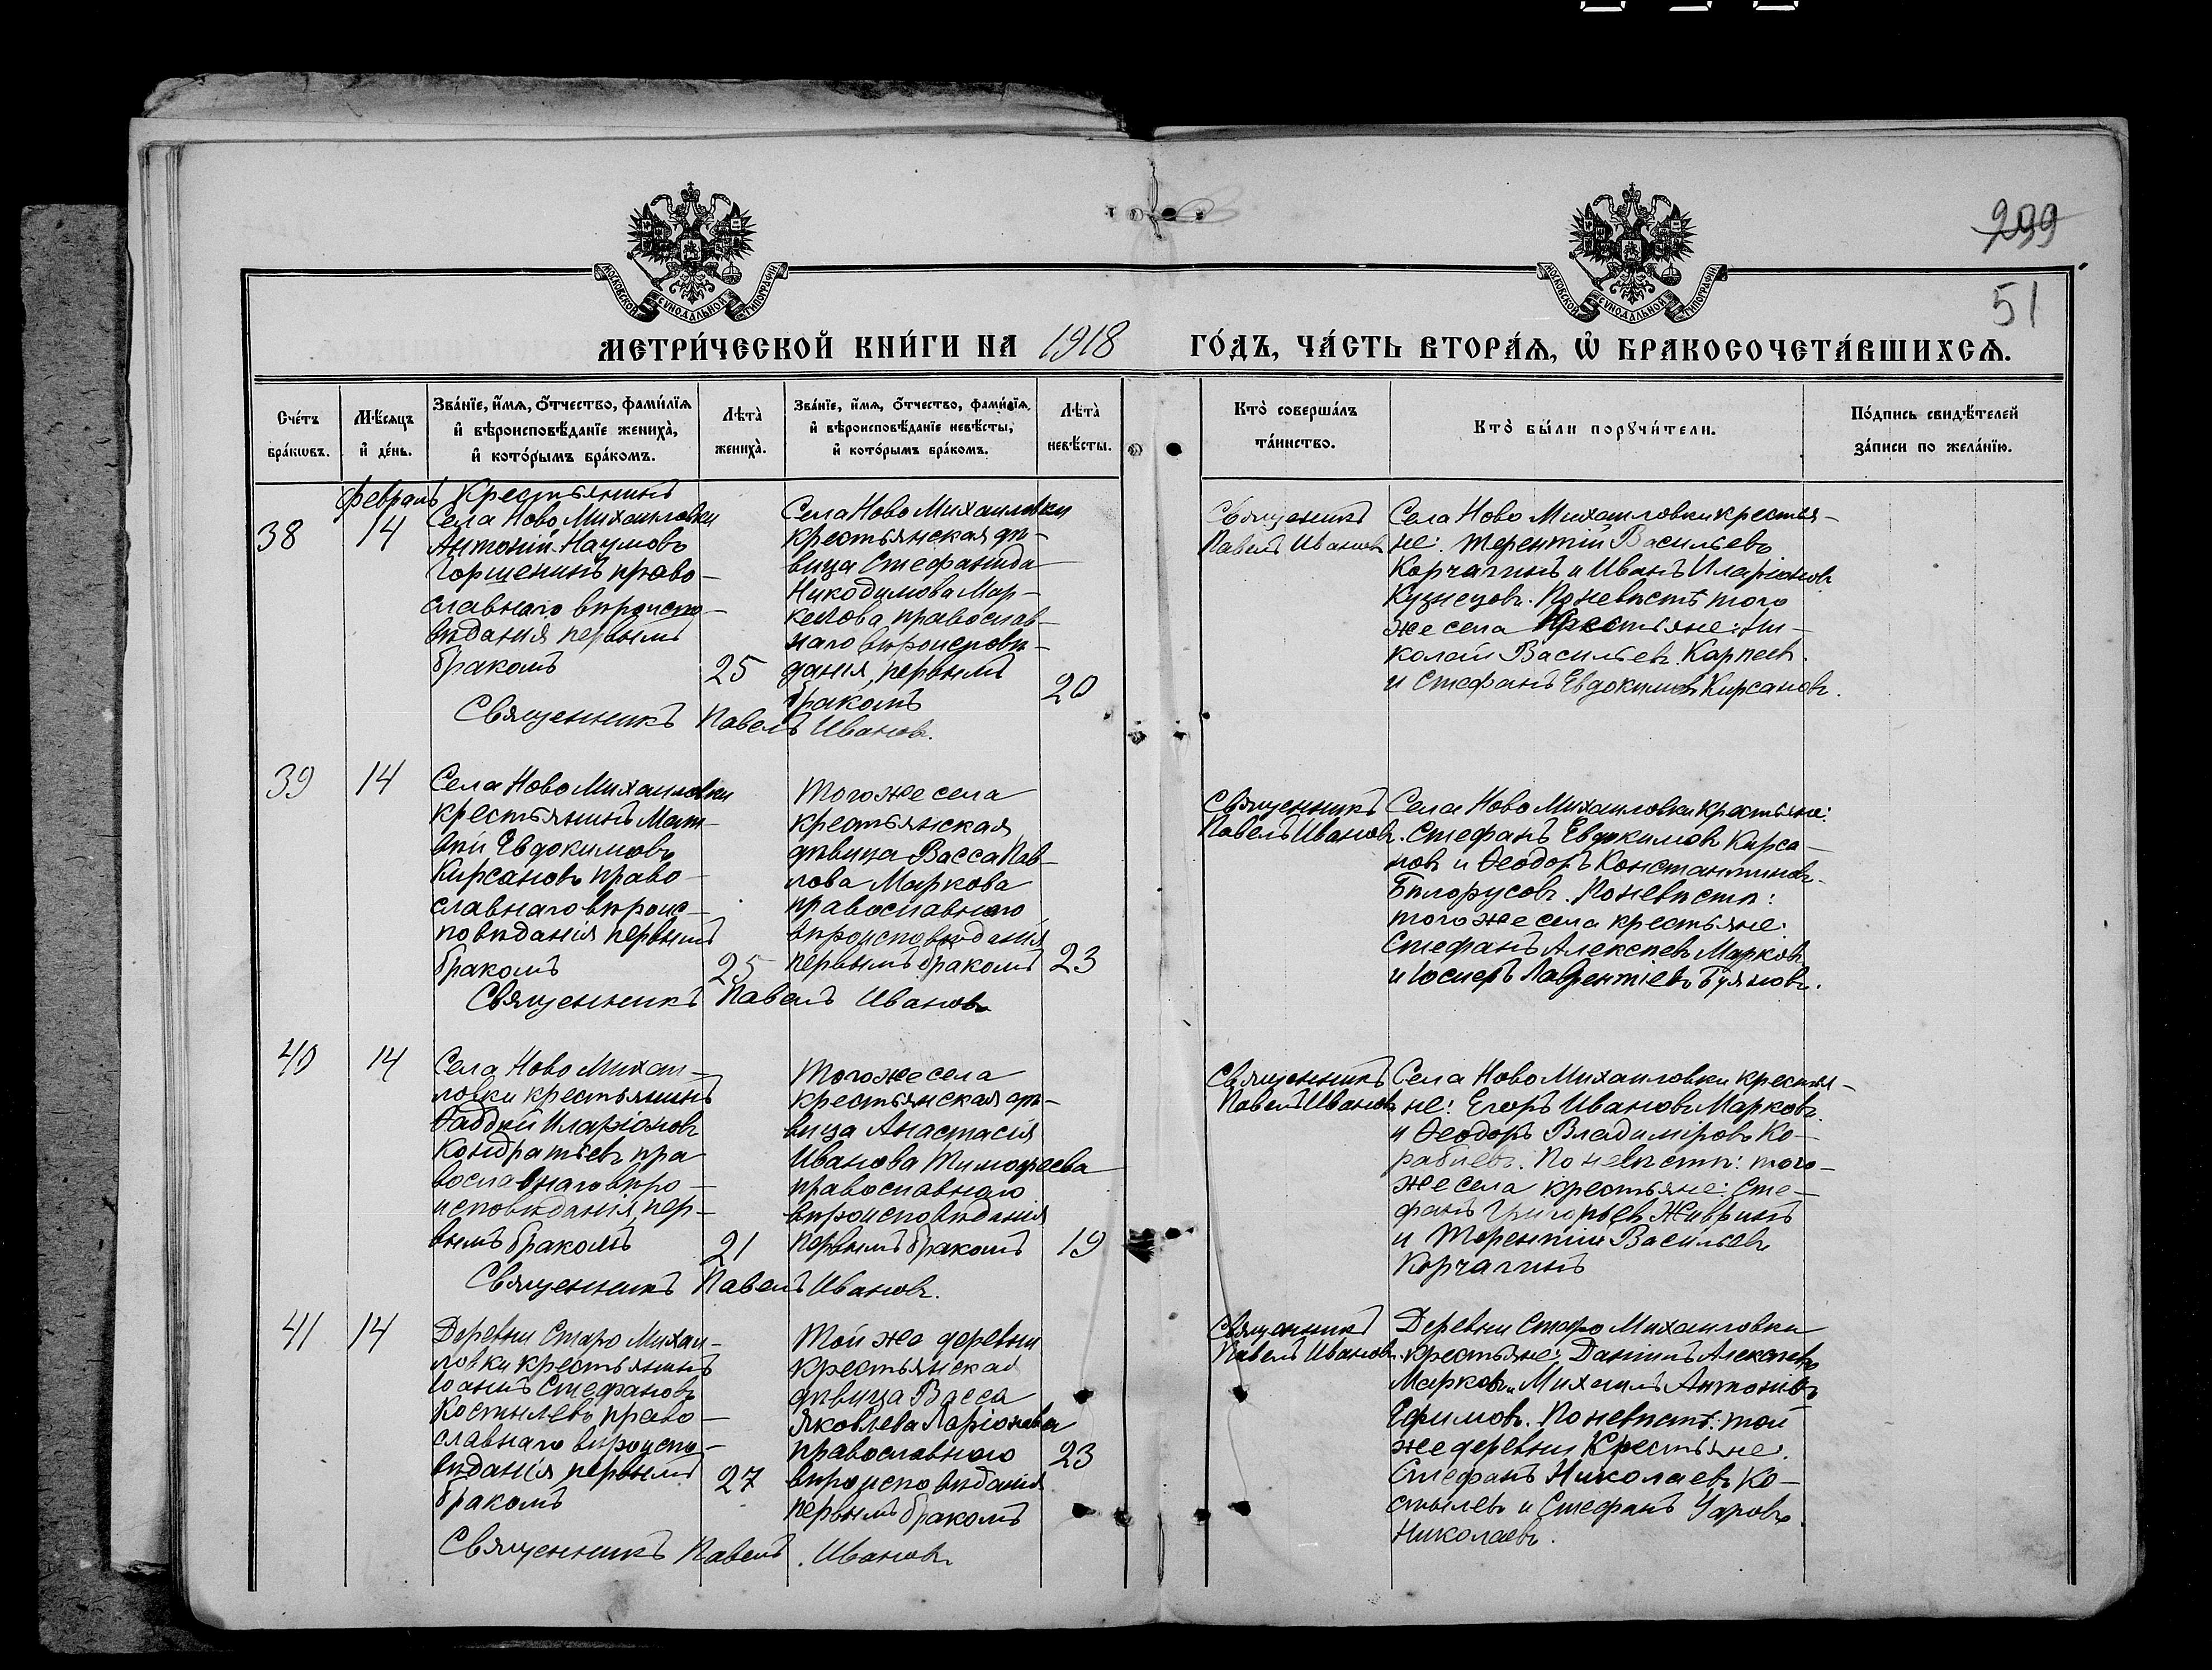 299
51
МОСКОВСКОЙ СѴНОДАЛЬНОЙ ТИПОГРАФІИ
МОСКОВСКОЙ СѴНОДАЛЬНОЙ ТИПОГРАФІИ
МЕТРИ́ЧЕСКОЙ КНИ́ГИ НА 1918 ГО́ДЪ, ЧА́СТЬ ВТОРА́Ѧ, Ѽ БРАКОСОЧЕТА́ВШИХСѦ.
Сче́тъ бра́кѡвъ.
Мѣ́сяцъ и҆ де́нь.
Зва́нїе, и҆́мѧ, ѻ҆́тчество, фами́лїѧ
и҆ вѣроисповѣ́данїе жениха̀,
и҆ кото́рымъ бра́комъ.
Лѣта̀ жениха̀.
Зва́нїе, и҆́мѧ, ѻ҆́тчество, фами́лїѧ,
и҆ вѣроисповѣ́данїе невѣ́сты,
и҆ кото́рымъ бра́комъ.
Лѣта̀ невѣ́сты.
Кто̀ соверша́лъ
та́инство.
Кто̀ бы́ли порꙋчи́тели.
По́дпись свидѣ́телей
за́писи по жела́нїю.
Февраль
38
14
Крестьянинъ
Села Ново Михаиловки
Антоній Наумовъ
Горшенинъ право-
славнаго вѣроиспо-
вѣданія первымъ
бракомъ
25
Села Ново Михаиловки
крестьянская дѣ-
вица Стефанида
Никодимова Мар-
келова, православ-
наго вѣроисповѣ-
данія, первымъ
бракомъ
20
Священникъ Павелъ Ивановъ.
Священникъ
Павелъ Ивановъ
Села Ново Михаиловки крестья-
не: Терентій Васильевъ
Корчагинъ и Иванъ Иларіоновъ
Кузнецовъ. По невѣстѣ того
же села Крестьяне: Ни-
колай Васильевъ Карпеевъ
и Стефанъ Евдокимовъ Кирсановъ.
39
14
Села Ново Михаиловки
крестьянинъ Мат-
вѣй Евдокимовъ
Кирсановъ право-
славнаго вѣроис-
повѣданія первымъ
бракомъ
25
Того же села
крестьянская
дѣвица Васса Пав-
лова Маркова
православнаго
вѣроисповѣданія
первымъ бракомъ
23
Священникъ Павелъ Ивановъ
Священникъ
Павелъ Ивановъ.
Села Ново Михаиловки крестьяне:
Стефанъ Евдокимовъ Кирса-
новъ и Ѳеодоръ Константиновъ
Бѣлорусовъ. По невѣстѣ:
того же села крестьяне:
Стефанъ Алексѣевъ Марковъ
и Іосифъ Лаврентіевъ Буяновъ.
40
14
Села Ново Михаи-
ловки крестьянинъ
Ѳаддей Иларіоновъ
Кондратьевъ пра-
вославнаго вѣро-
исповѣданія, пер-
вымъ бракомъ
21
Того же села
крестьянская дѣ-
вица Анастасія
Иванова Тимофеева
православнаго
вѣроисповѣданія
первымъ бракомъ
19
Священникъ Павелъ Ивановъ.
Священникъ
Павелъ Ивановъ
Села Ново Михаиловки крестья-
не: Егоръ Ивановъ Марковъ.
и Ѳеодоръ Владиміровъ Ко-
раблевъ. По невѣстѣ: того-
же села крестьяне: Сте-
фанъ Григорьевъ Живринъ
и Терентій Васильевъ
Корчагинъ
41
14
Деревни Старо Михаи-
ловки крестьянинъ
Іоаннъ Стефановъ
Костылевъ право-
славнаго вѣроиспо-
вѣданія первымъ
бракомъ
27
Той же деревни
крестьянская
дѣвица Васса
Яковлева Ларіонова
православнаго
вѣроисповѣданія
первымъ бракомъ
23
Священникъ Павелъ Ивановъ
Священникъ
Павелъ Ивановъ.
Деревни Старо Михаиловки
крестьяне: Даніилъ Алексѣевъ
Марковъ и Михаилъ Антоновъ
Ефимовъ. По невѣстѣ: той
же деревни Крестьяне:
Стефанъ Николаевъ Ко-
стылевъ и Стефанъ Уаровъ
Николаевъ.